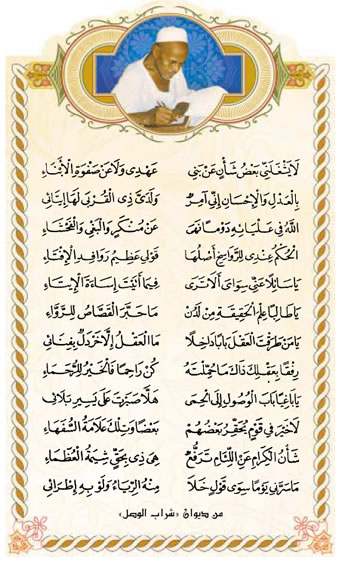 لَا يَشْغَلَنِّي بَعْضُ شَأْنٍ عَنْ بَنِي عَهْدِي وَلَا عَنْ صَفْوَةِ الْأَبْنَاءِ
بِالْعَدْلِ وَالْإِحْسَانِ إِنِّي آمِرٌ وَلَدَى ذِي الْقُرْبَى لَهَا إِيتَائِي
اللهُ فِي عَلْيَائِهِ دَوْمًا نَهَى عَنْ مُنْكَرٍ وَالْبَغْيِ وَالْفَحْشَاءِ
الْحُكْمُ عِنْدِي لِلرَّوَاسِخِ أَصْلُهَا قَوْلٌ عَظِيمُ رَوَافِدِ الْإِفْتَاءِ
يَا سَائِلًا عَنِّي سِوَايَ أَلَا تَرَى فِيمَا أَتَيْتَ إِسَاءَةَ الْإِيتَاءِ
يَا طَالِبًا عِلْمَ الْحَقِيقَةِ مِنْ لَدُنْ مَا حَبَّرَ الْقَصَّاصُ لِلرُّوَّاءِ
يَا مَنْ طَرَقْتَ الْعَقْلَ بَابًا دَاخِلًا مَا الْعَقْلُ إِلَّا خَرْدَلٌ بِفِنَائِي
رِفْقًا بِعَقْلِكَ ذَاكَ مَا حُمِّلْتَهُ كُنْ رَاحِمًا فَالْخَيْرُ لِلرُّحَمَاءِ
يَا بَاغِيًا بَابَ الْوُصُولِ إِلَى الْحِمَى هَلَّا صَبَرْتَ عَلَى يَسِيرِ بَلَائِي
لَا خَيْرَ فِي قَوْمٍ يُحَقِّرُ بَعْضُهُمْ بَعْضًا وَتِلْكَ عَلَامَةُ السُّفَهَاءِ
شَأْنُ الْكِرَامِ عَنِ اللِّئَامِ تَرَفُّعٌ هِيَ ذِي بِحَقٍّ شِيمَةُ الْعُظَمَاءِ
مَا سَرَّنِي يَوْمًا سِوَى قَوْلٍ خَلَا مِنْهُ الرِّيَاءُ وَلَوْ بِهِ إِطْرَائِي
من ديوان «شراب الوصل»